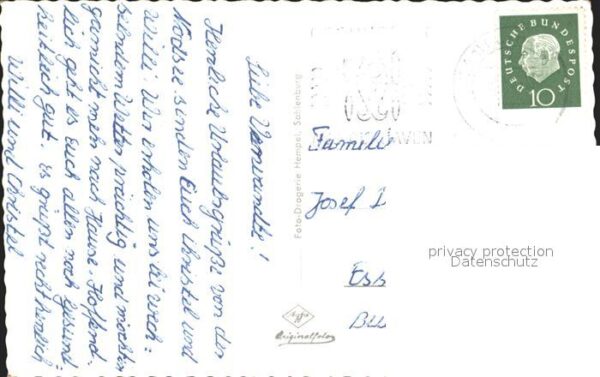 Liebe Verwandte!
Herzliche Urlaubsgrüße von der
Nordsee senden Euch Christel und
Willi. Wir erholen uns bei wech-
selndem Wetter prächtig und möchten
garnicht mehr nach Hause. Hoffent-
lich geht es Euch allen noch gesund-
heitlich gut. es grüßt recht herzlich
Willi und Christel
Foto-Drogerie Hempel, Sahlenburg
Agfa
Originalfoto
DEUTSCHE BUNDESPOST
10
Familie
Josef
Ess
privacy protection
Datenschutz